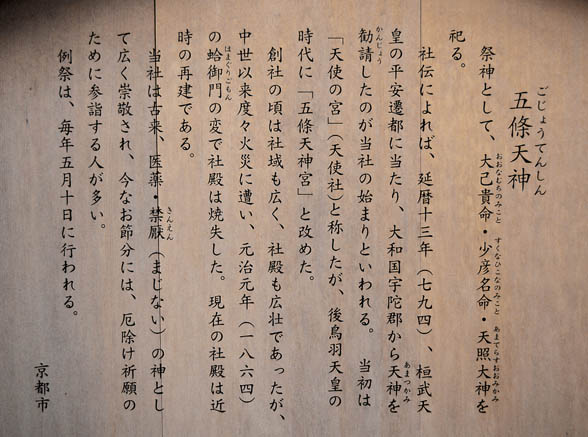 五條天神
ごじょうてんしん
祭神として、大己貴命・少彦名命・天照大神を
おおなむちのみこと
すくなひこなのみこと
あまてらすおおみかみ
祀る。
社伝によれば、延暦十三年（七九四）、桓武天
皇の平安遷都に当たり、大和国宇陀郡から天神を
あまつかみ
勧請したのが当社の始まりといわれる。　当初は
かんじょう
「天使の宮」（天使社）と称したが、後鳥羽天皇の
時代に「五條天神宮」と改めた。
創社の頃は社域も広く、社殿も広壮であったが、
中世以来度々火災に遭い、元治元年（一八六四）
の蛤御門の変で社殿は焼失した。現在の社殿は近
はまぐりごもん
時の再建である。
当社は古来、医薬・禁厭（まじない）の神とし
きんえん
て広く崇敬され、今なお節分には、厄除け祈願の
ために参詣する人が多い。
例祭は、毎年五月十日に行われる。
京都市